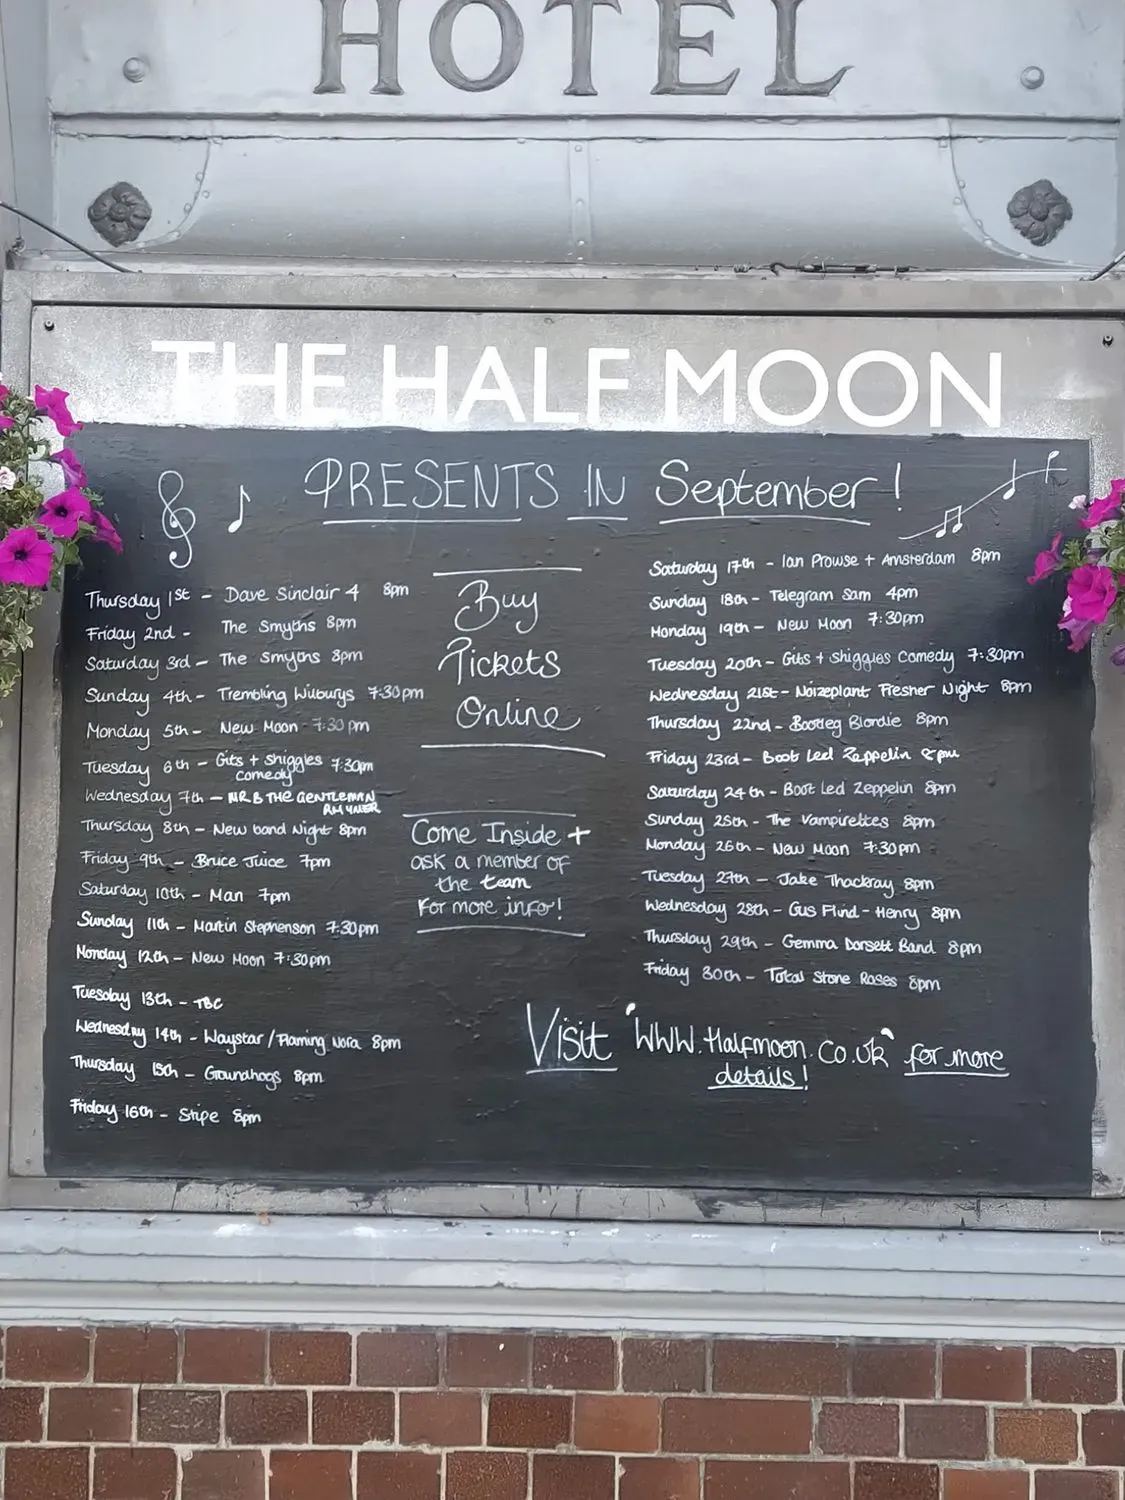 HOTEL
THE HALF MOON
PRESENTS IN September!
Thursday 1st - Dave Sinclair 4 8pm
Friday 2nd - The Smyths 8pm
Saturday 3rd - The Smyths 8pm
Sunday 4th - Trembling Wilburys 7:30pm
Monday 5th - New Moon 7:30pm
Tuesday 6th - Gits + shiggles 7:30pm
comedy
Wednesday 7th - MR B THE GENTLEMAN
RHYMER
Thursday 8th - New band Night 8pm
Friday 9th - Bruce Juice 7pm
Saturday 10th - Man 7pm
Sunday 11th - Martin Stephenson 7:30pm
Monday 12th - New Moon 7:30pm
Tuesday 13th - TBC
Wednesday 14th - Waystar / Flaming Nora 8pm
Thursday 15th - Groundhogs 8pm
Friday 16th - Stipe 8pm
Buy
Tickets
Online
Come Inside +
ask a member of
the team
For more info!
Saturday 17th - Ian Prowse + Amsterdam 8pm
Sunday 18th - Telegram Sam 4pm
Monday 19th - New Moon 7:30pm
Tuesday 20th - Gits + Shiggles Comedy 7:30pm
Wednesday 21st - Noizeplant Fresher Night 8pm
Thursday 22nd - Bootleg Blondie 8pm
Friday 23rd - Boot Led Zeppelin 8pm
Saturday 24th - Boot Led Zeppelin 8pm
Sunday 25th - The Vampirettes 8pm
Monday 26th - New Moon 7:30pm
Tuesday 27th - Jake Thackray 8pm
Wednesday 28th - Gus Flind-Henry 8pm
Thursday 29th - Gemma Dorsett Band 8pm
Friday 30th - Total Stone Roses 8pm
Visit 'WWW.Halfmoon.co.uk' for more
details!